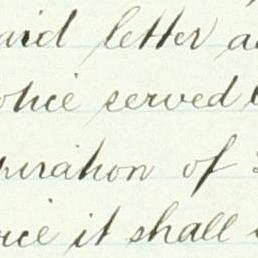 aid letter a
otice served
piration of
ice it shall